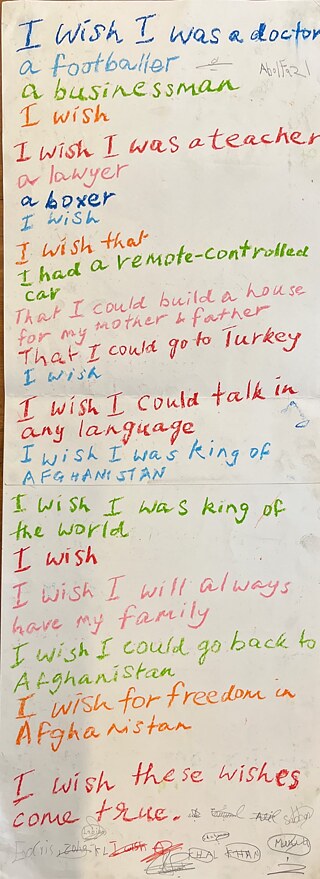 I wish I was a doctor
a footballer
a businessman
I wish
I wish I was a teacher
a lawyer
a boxer
I wish
I wish that
I had a remote-controlled
car
That I could build a house
for my mother & father
That I could go to Turkey
I wish
I wish I could talk in
any language
I wish I was king of
AFGHANISTAN
I wish I was king of
the world
I wish
I wish I will always
have my family
I wish I could go back to
Afghanistan
I wish for freedom in
Afghanistan
I wish these wishes
come true.
KHAN